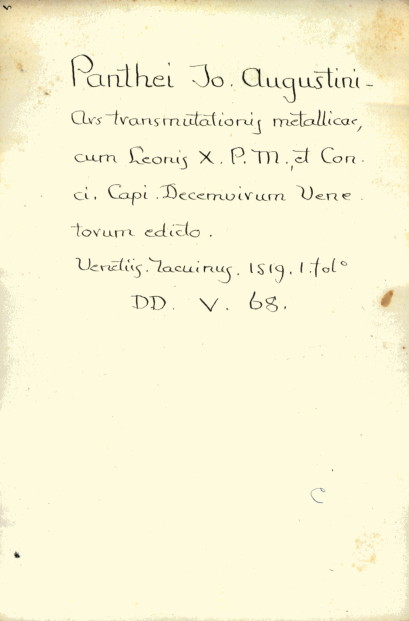 Panthei Jo. Augustini-
Ars transmutationis metallicae,
cum Leonis X. P. M., et Con.
ci. Capi. Decemvirum Vene.
torum edicto.
Venetiis. Tacuinus. 1519. 1. folº
DD. V. 68.
C